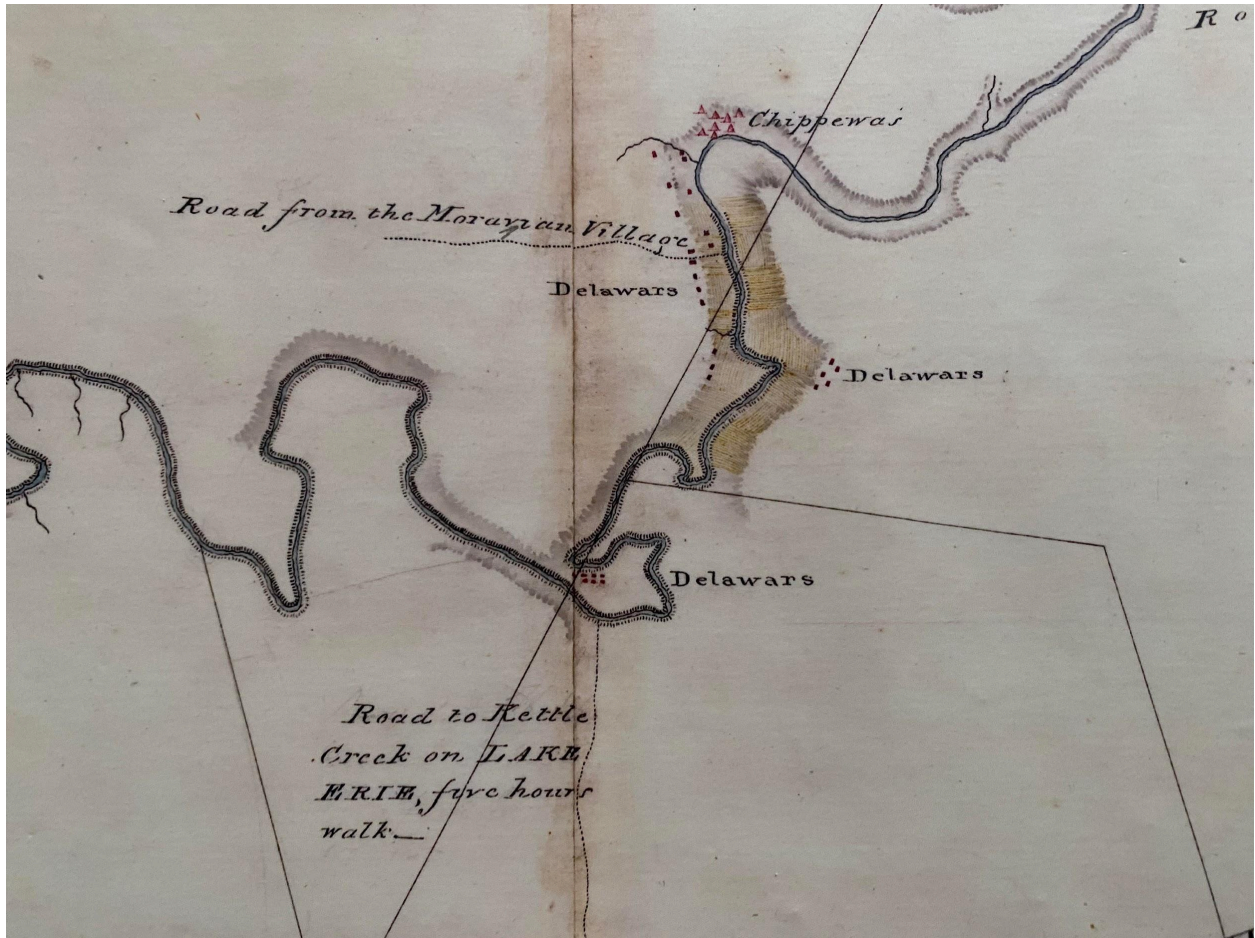 R o
Chippewas
Road from the Moravian Village
Delawars
Delawars
Delawars
Road to Kettle
Creek on LAKE
ERIE, five hours
walk—